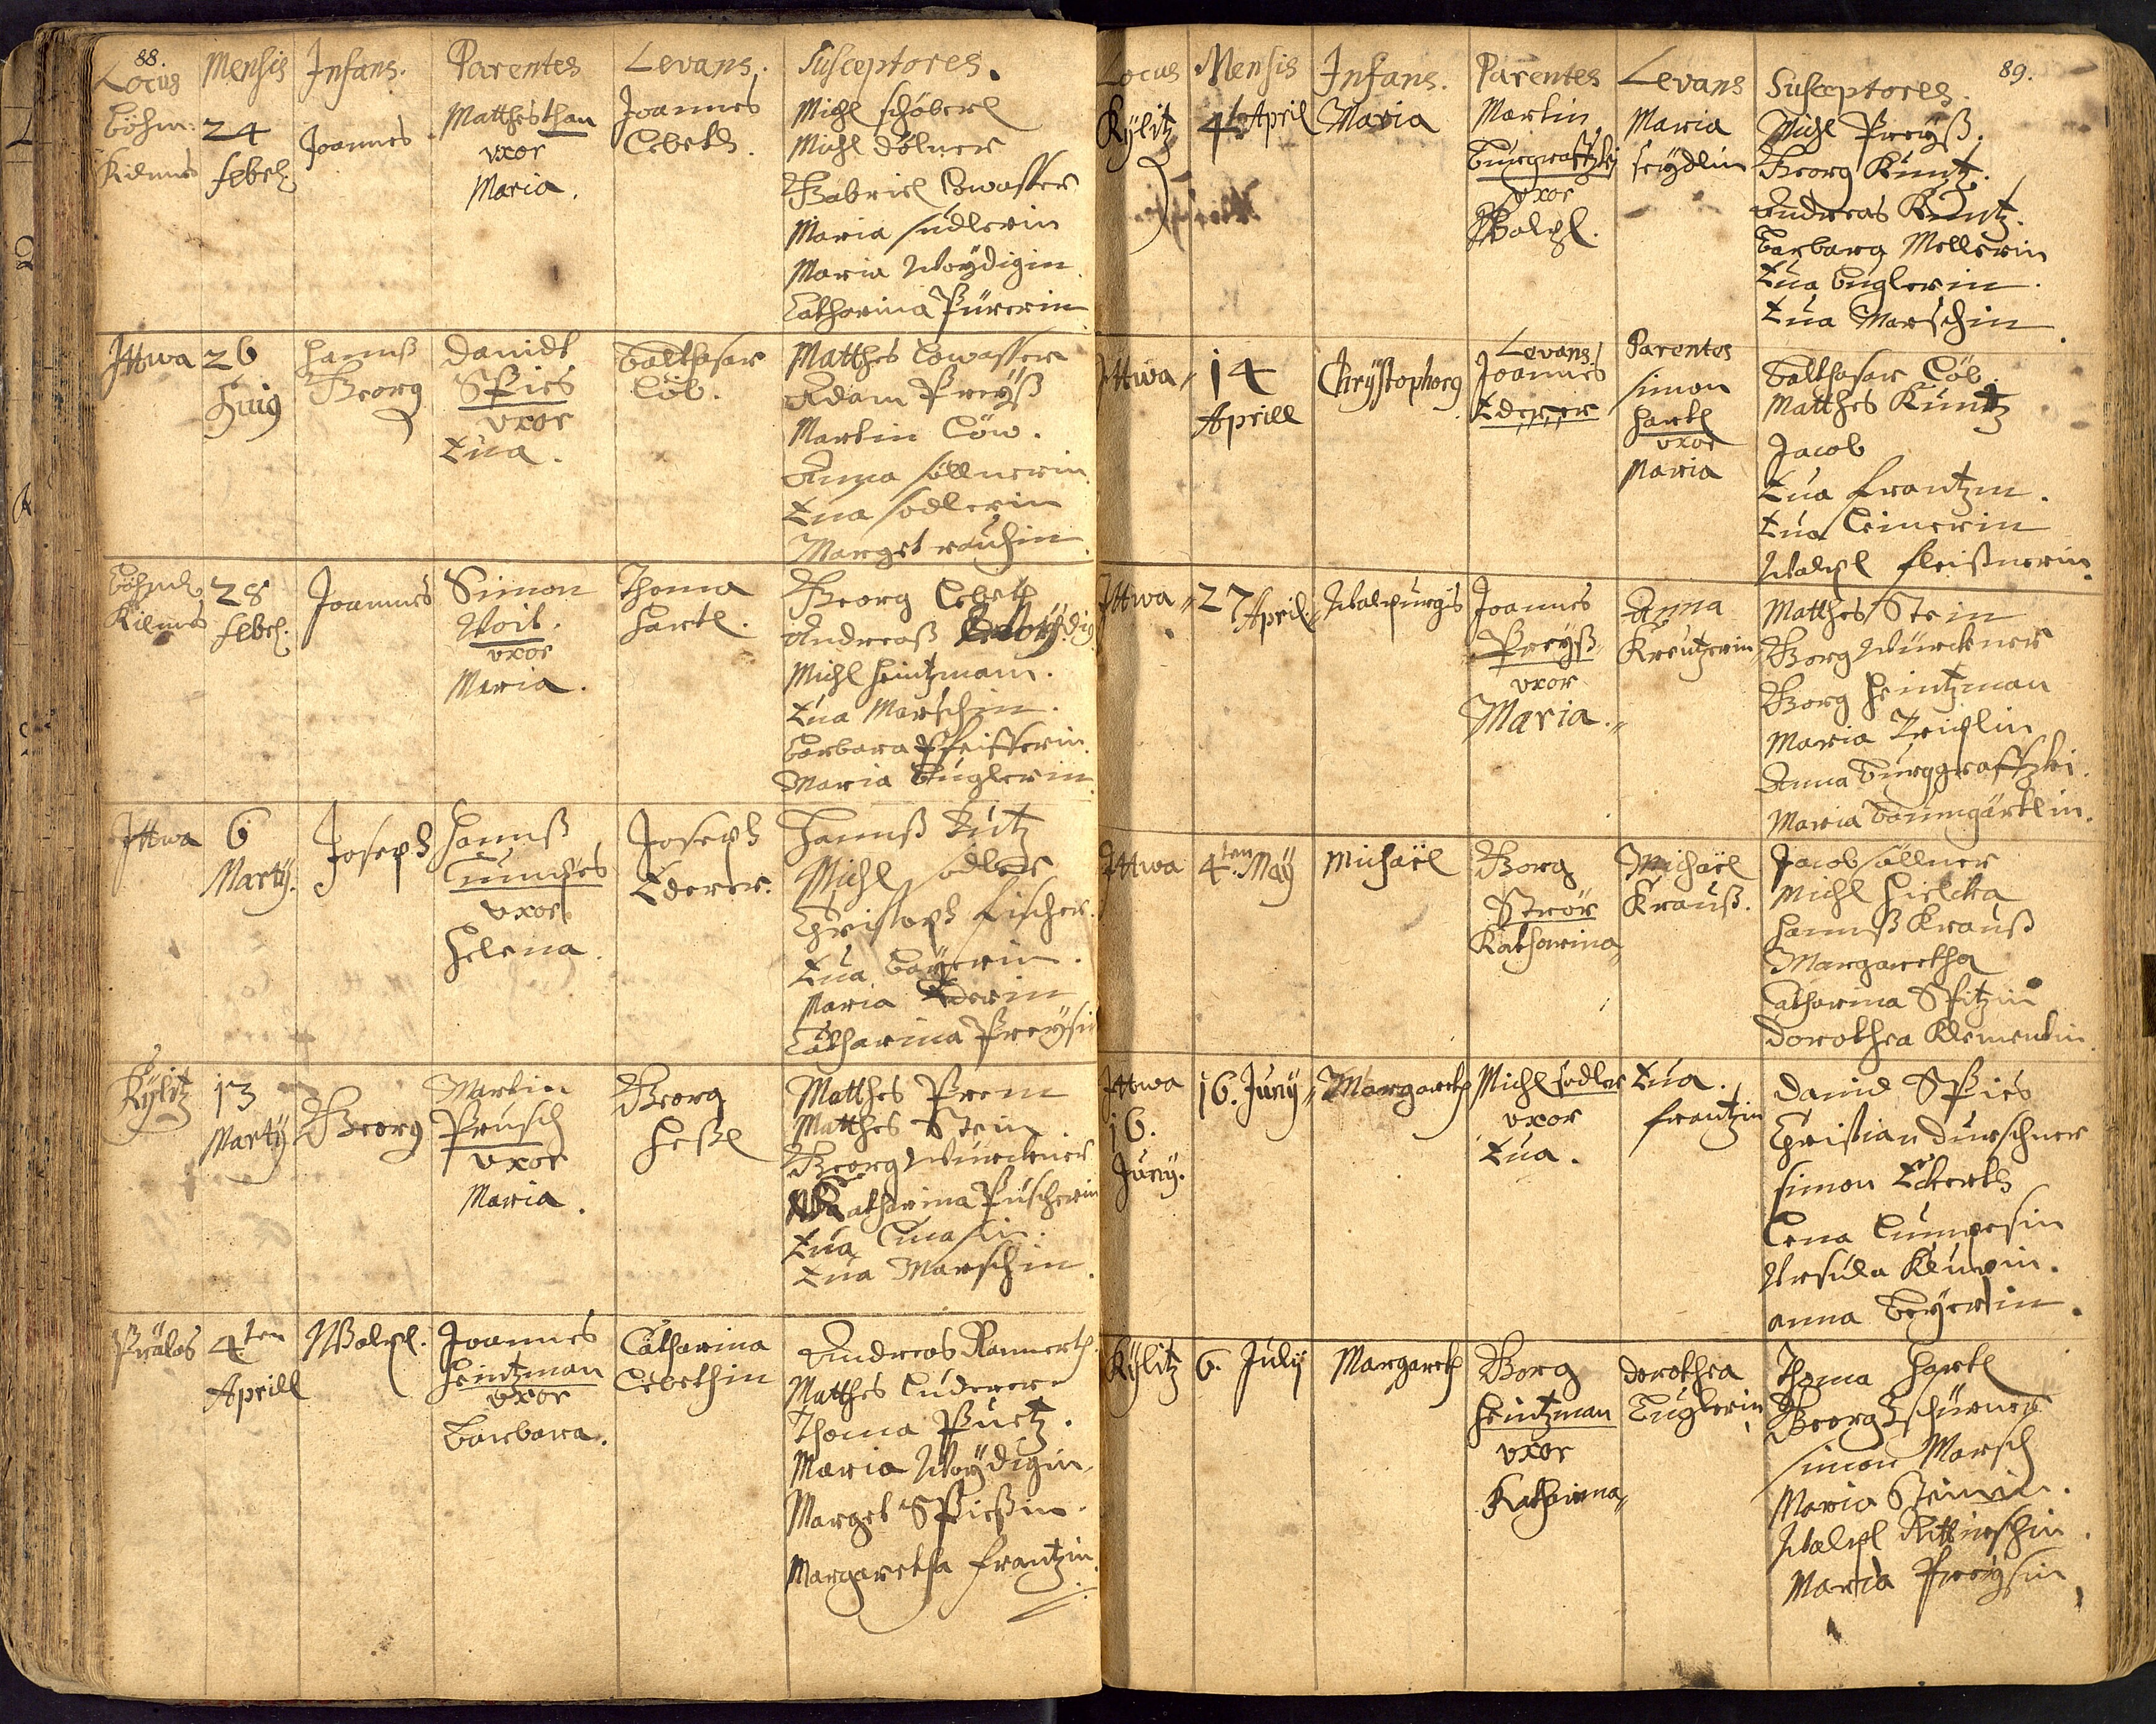 88.
Locus Mensis Infans. Parentes Levans. Susceptores.
Böhm: Kilmes
24 Febr.
Joannes
Matthes Han
vxor
Maria.
Joannes
Lebeth.
Michl Schöberl
Michl Dölner
Gabriel Lowasser
Maria Südlerin
Maria Woÿdigin
Catharina Pürerin
Ittwa
26
Huig
Hannß
Georg
Davidt
Spies
vxor
Eua.
Balthasar
Löb.
Matthes Lowasser
Adam Preÿß
Martin Löw.
Anna Söllnerin
Eua Sodlerin
Marget
Böhm.
Kilmes
28
Febr.
Joannes
Simon
Voit.
vxor
Maria.
Thoma
Hartl.
Georg Lebeth
Andreaß
Michl Heintzmann.
Eua Marschin.
Barbara Pfeifferin.
Maria Buglerin
Ittwa
6
Martÿ.
Joseph
Hannß
Lumpes
vxor
Helena.
Joseph
Ederer.
Hannß Lutz
Michl Sodler
Christoph Fischer.
Eua Baÿerin.
Maria Ederin
Catharina Preÿsin
Kÿlitz
13
Martÿ
Georg
Martin
Prusch
vxor
Maria.
Georg
Heßl
Matthes Prem
Matthes Stein
Georg Würckner
Katharina Puscherin
Eua
Eua Marschin.
Prälas
4ten
Aprill
Walpl.
Joannes
Heintzman
vxor
Barbara.
Catharina
Lebethin
Andreas Rannerth.
Matthes Luderer
Thoma Puetz.
Maria Woÿdigin.
Marget Spießin.
Margaretha Frantzin.
89.
Locus Mensis Infans. Parentes Levans Susceptores.
Kÿlitz
4te April
Maria
Martin
Burgraffzki
vxor
Walpl.
Maria
Seÿdlin
Michl Preÿß.
Georg Kuntz.
Andreas Kuntz.
Barbara Mellerin
Eua Buglerin.
Eua Marschin.
Ittwa
14
Aprill
Chrÿstophorg
Levans
Joannes
Ederer
Parentes
Simon
Hartl
vxor
Maria
Balthasar Löb.
Matthes Kuntz
Jacob
Eua Frantzin.
Eua Leinerin
Walpl Fleißnerin.
Ittwa
27 April
Walpurgis
Joannes
Preÿß
vxor
Maria.
Anna
Kreutzerin
Matthes Stein
Georg Würckner
Georg Heintzman
Maria
Anna Burggraffzki.
Maria Baumgärtlin.
Ittwa
4ten Maÿ
Michaël
Georg
Strör
Katharina
Michaël
Krauß.
Jacob Söllner
Michl Hielcka
Hannß Krauß
Margaretha
Catharina Spitzin
Dorothea Klementin.
Ittwa
16.
Junÿ.
16. Junÿ
Margareth
Michl Sodler
vxor
Eua.
Eua.
Frantzin
David Spies
Christian Durschner
Simon Eckerth
Lena Lumpesin
Vrsula
Anna Beÿerlin.
Kÿlitz
6. Julÿ
Margareth
Georg
Heintzman
vxor
Katharina
Dorothea
Buglerin
Thoma Hartl
Georg Tschürner
Simon Marsch
Maria Steinin.
Walpl
Maria Preÿsin